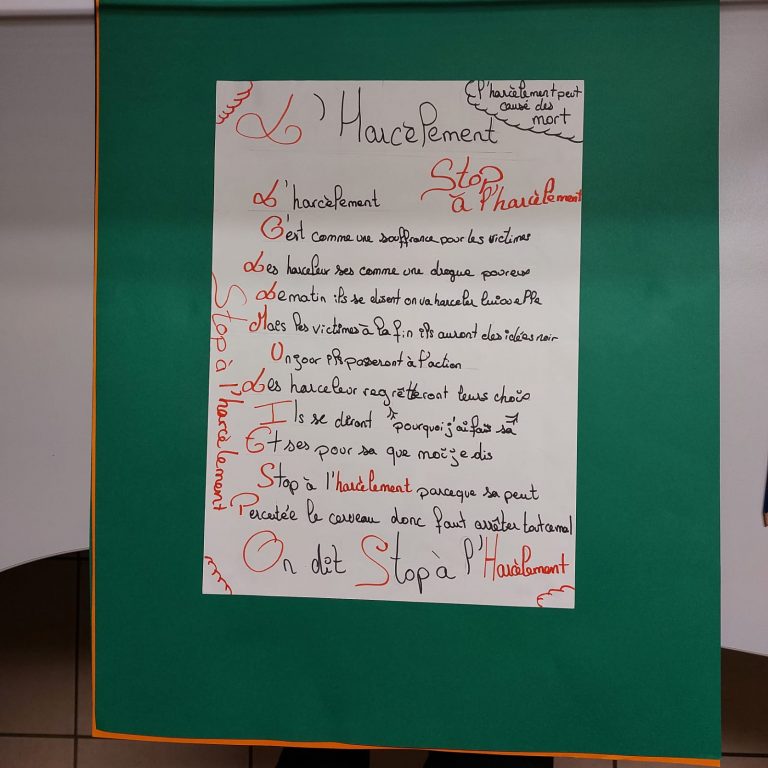 L'Harcèlement
l'harcèlement peut
causé des
mort
Stop
à l'harcèlement
L'harcèlement
C'est comme une souffrance pour les victimes
Les harceleur ses comme une drogue pour eux
Le matin ils se disent on va harceler lui ou elle
Mais les victimes à la fin ils auront des idées noir
Un jour ils passeront à l'action
Les harceleur regretteront leurs chois
Ils se diront "pourquoi j'ai fais sa"
Et ses pour sa que moi je dis
Stop à l'harcèlement parceque sa peut
Percutée le cerveau donc faut arrêter tout ce mal
On dit Stop à l'Harcèlement
Stop à l'harcèlement